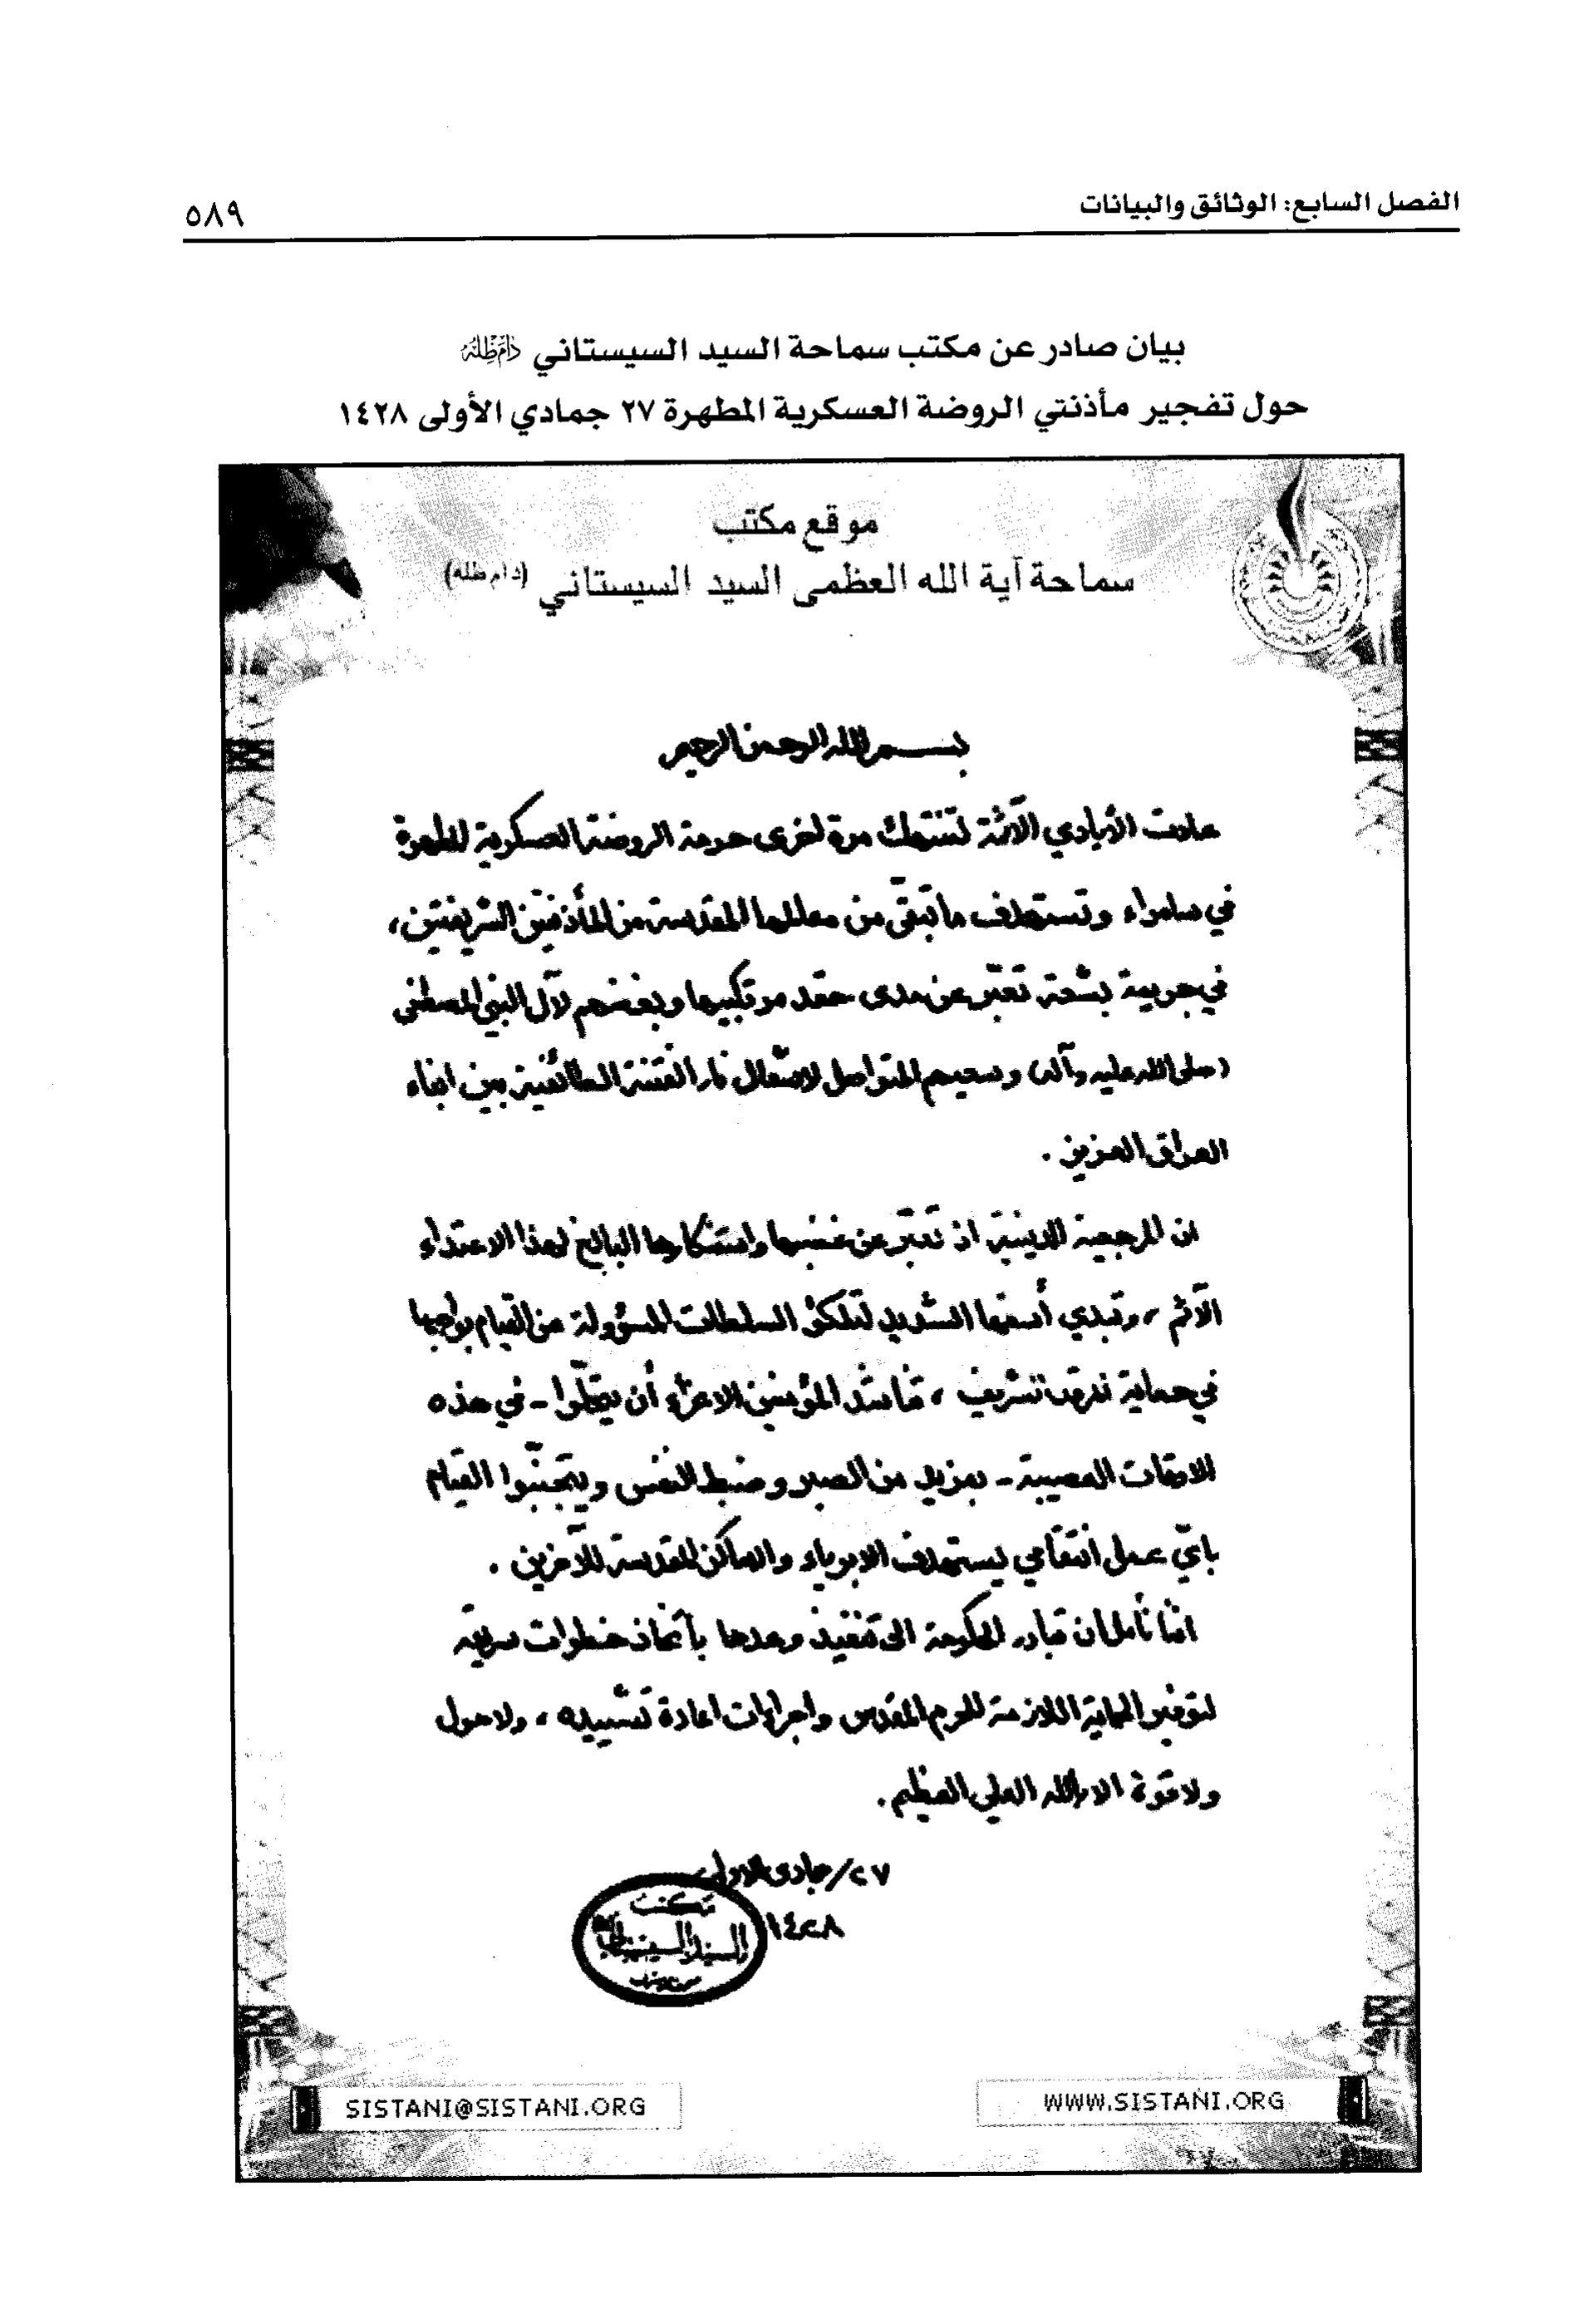 الفصل السابع: الوثائق والبيانات
٥٨٩
بيان صادر عن مكتب سماحة السيد السيستاني دام ظله
حول تفجير مأذنتي الروضة العسكرية المطهرة ٢٧ جمادي الأولى ١٤٢٨
موقع مكتب
سماحة آية الله العظمى السيد السيستاني (دام ظله)
بسم الله الرحمن الرحيم
عادت الأيادي الآثمة لتنتهك مرة اخرى حرمة الروضة العسكرية المطهرة
في سامراء وتستهدف ما تبقّى من معالمها المقدسة من المأذنتين الشريفتين،
في جريمة بشعة تعبّر عن مدى حقد مرتكبيها وبغضهم لآل النبي المصطفى
(صلى الله عليه وآله) وسعيهم المتواصل لاشعال نار الفتنة الطائفية بين ابناء
العراق العزيز .
ان المرجعية الدينية اذ تعبّر عن غضبها واستنكارها البالغ لهذا الاعتداء
الآثم ، وتبدي أسفها الشديد لتلكؤ السلطات المسؤولة عن القيام بواجبها
في حماية المرقد الشريف ، تناشد المؤمنين الاعزّاء أن يتحلّوا - في هذه
الاوقات العصيبة - بمزيد من الصبر وضبط النفس ويتجنّبوا القيام
بأيّ عمل انتقامي يستهدف الابرياء والاماكن المقدسة للآخرين .
اننا نأمل ان تبادر الحكومة الى تنفيذ وعدها بأتخاذ خطوات سريعة
لتوفير الحماية اللازمة للحرم المقدس واجراءات اعادة تشييده ، ولا حول
ولا قوة الا بالله العلي العظيم .
٢٧/جمادى الاولى
١٤٢٨
مكتب
السيد السيستاني
SISTANI@SISTANI.ORG
WWW.SISTANI.ORG